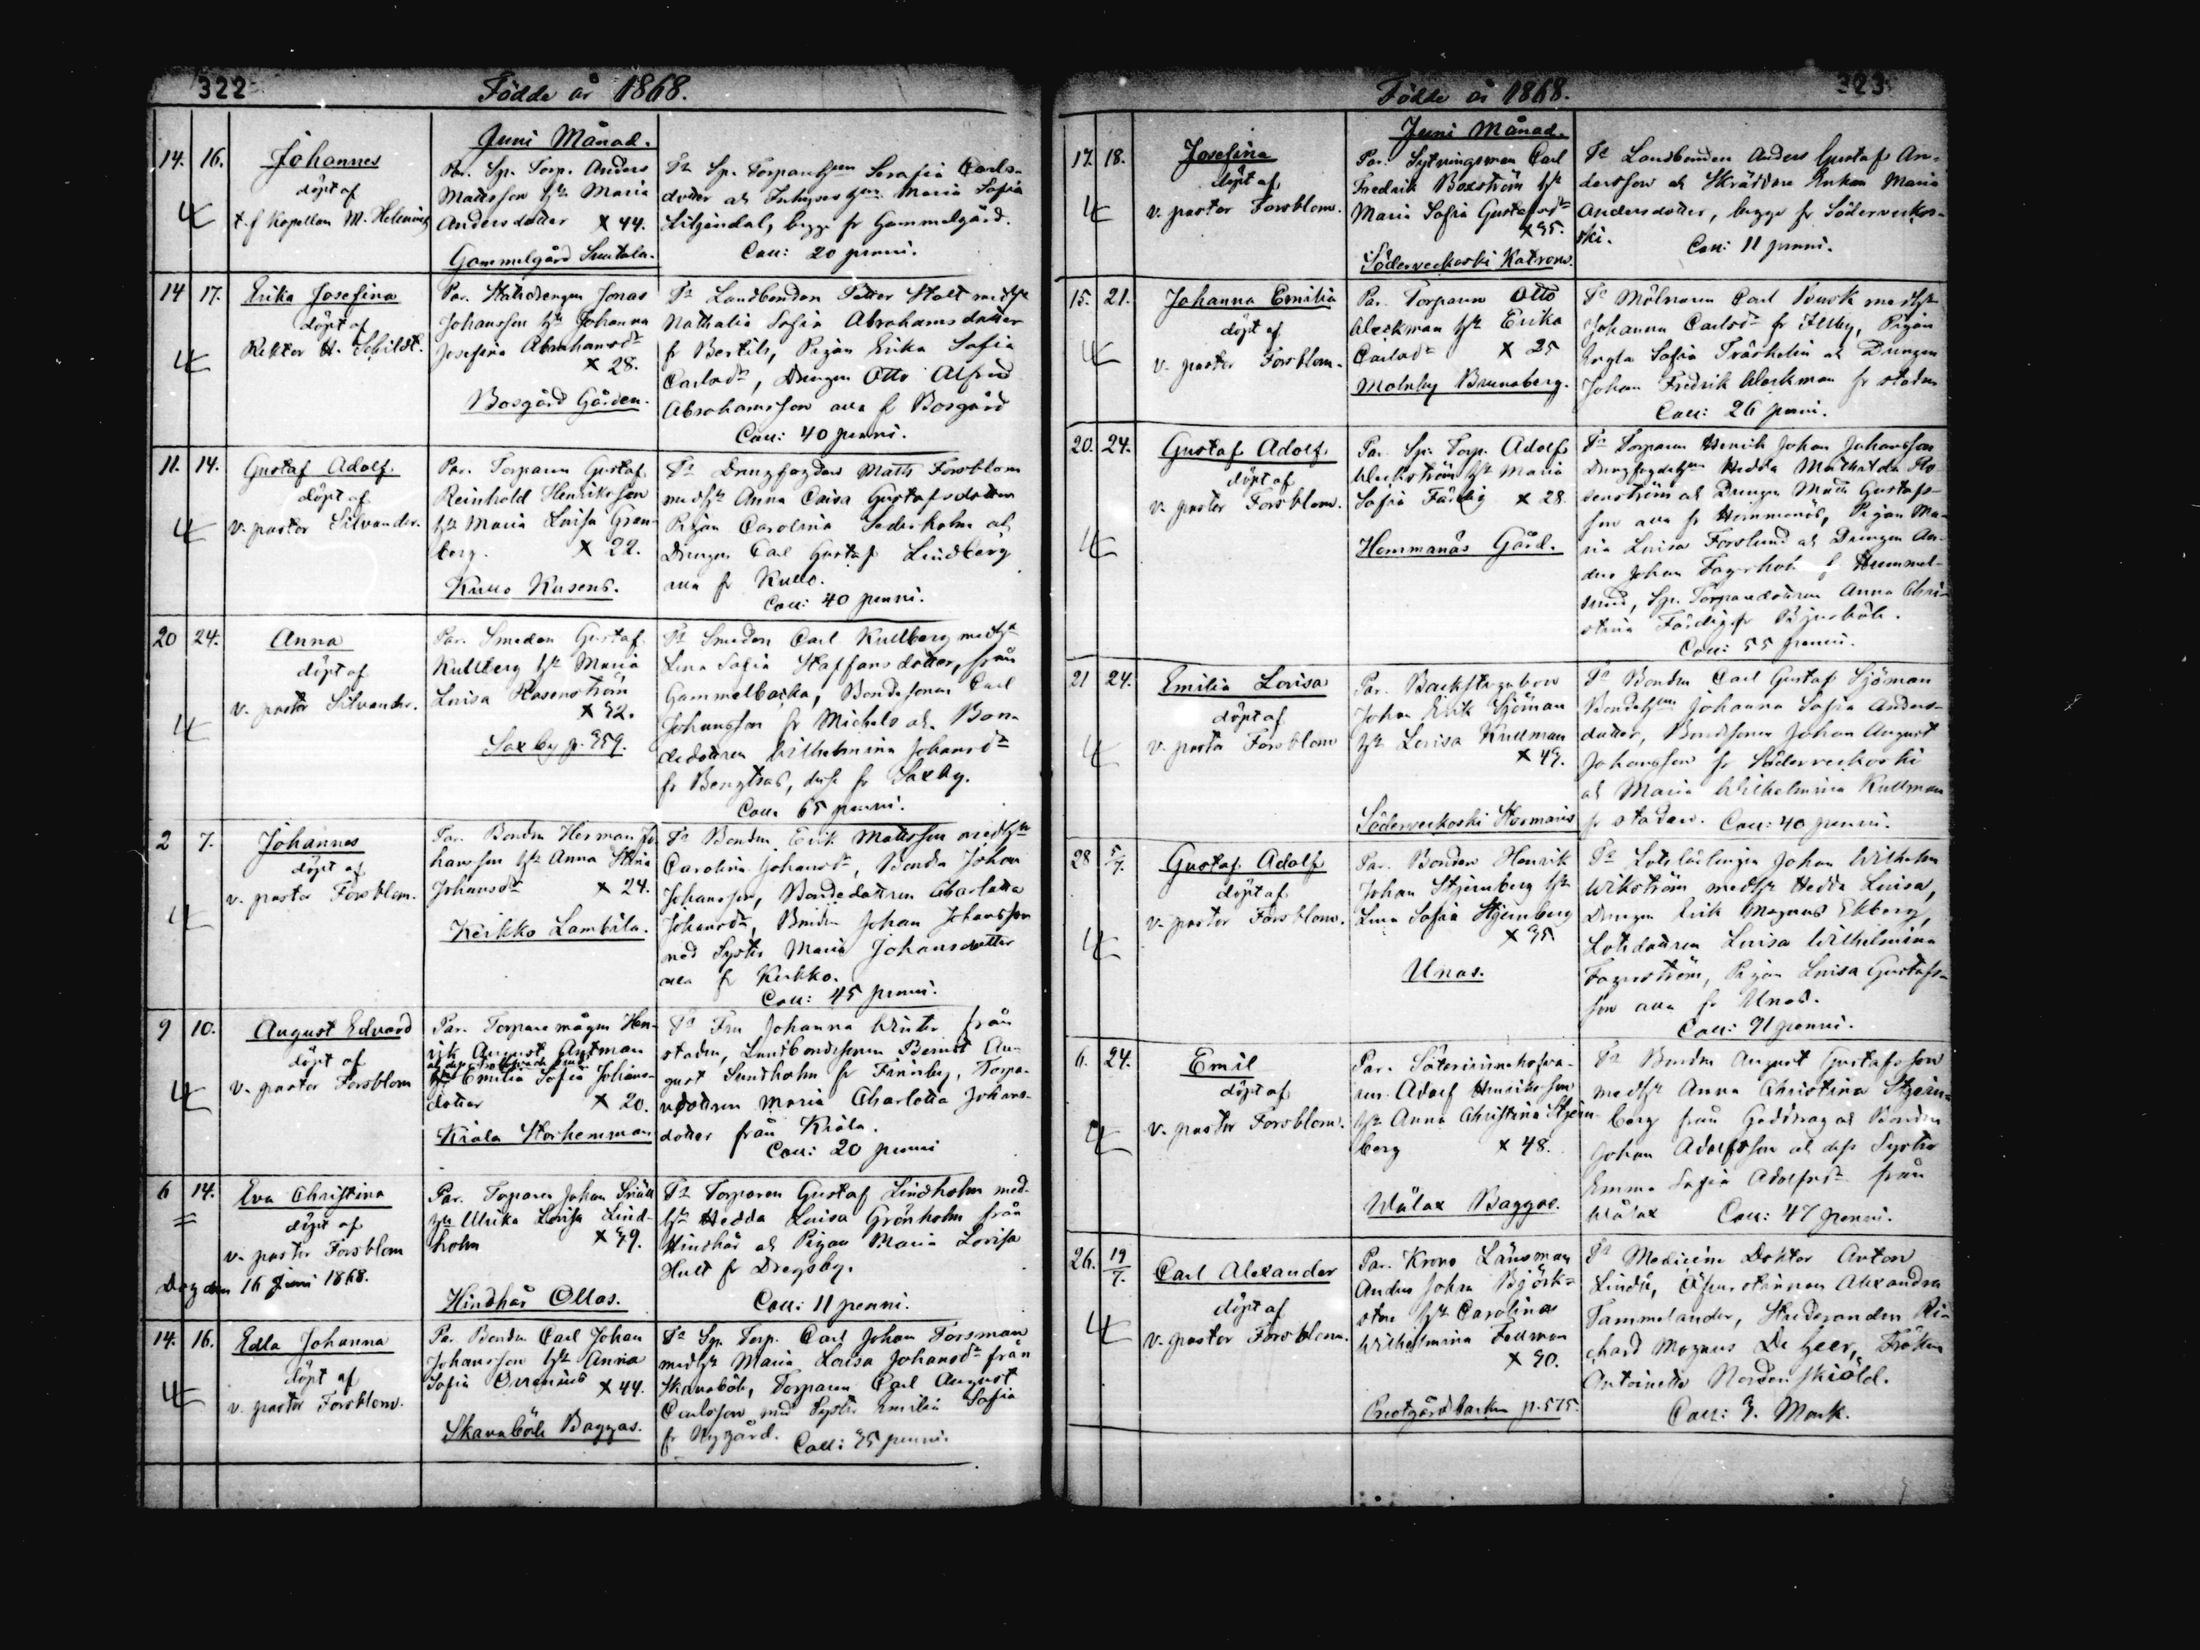 322
Födde år 1868.
Juni Månad.
14. 16. Johannes
döpt af
t.f. Kapellan M. Helenius
Par. Sp. Torp. Anders
Mattsson hu Maria
Andersdotter x 44.
Gammelgård Suutala.
Ft Sp. Torpareh:un Serafia Carls-
dotter och Inhyses Maria Sofia
Liljendal, begge fr Gammelgård.
Coll: 20 penni.
14 17. Erika Josefina
döpt af
Rektor H. Schildt.
Par. Statsdrengen Jonas
Johansson hu Johanna
Josefina Abrahamsdr
x 28.
Bosgård Gården.
Ft Landbonden Petter Stolt medhu
Nathalia Sofia Abrahamsdotter
fr Bertils, Pigan Erika Sofia
Carlsdr, Drengen Otto Alfred
Abrahamsson alla fr Bosgård
Coll: 40 penni.
11. 14. Gustaf Adolf.
döpt af
v. pastor Silvander.
Par. Torparen Gustaf
Reinhold Henriksson
hu Maria Lovisa Gran-
berg. x 22.
Kullo Kusens.
Ft Drengfogden Matts Forsblom
medhu Anna Caisa Gustafsdotter
Pigan Carolina Söderholm och
Drengen Carl Gustaf Lindberg
alla fr Kullo.
Coll: 40 penni.
20 24. Anna
döpt af
v. pastor Silvander.
Par. Smeden Gustaf
Kullberg hu Maria
Lovisa Rosenström
x 32.
Saxby p. 359.
Ft Smeden Carl Kullberg medhu
Lena Sofia Staffansdotter, från
Gammelbacka, Bondesonen Carl
Johansson fr Michels och Bon-
dedottren Wilhelmina Johansdr
fr Bengtsas, dess fr Saxby.
Coll: 65 penni.
2 7. Johannes
döpt af
v. pastor Forsblom.
Par. Bonden Herman Jo-
hansson hu Anna Stina
Johansdr x 24.
Kerkko Lambila.
Ft Bonden Erik Mattsson medhu
Carolina Johansdr, Bonden Johan
Johansson, Bondedottren Charlotta
Johansdr, Bonden Johan Johansson
med Syster Maria Johansdotter
alla fr Kerkko.
Coll: 45 penni.
9 10. August Edvard
döpt af
v. pastor Forsblom
Par. Torpare mågen Hen-
rik August Antman
hu Emilia Sofia Johans-
dotter x 20.
Kiala Storhemman
Ft Fru Johanna Winter från
staden, Landbondesonen Bernt Au-
gust Sundholm fr Finnby, Torpa-
redottren Maria Charlotta Johans-
dotter från Kiala.
Coll: 20 penni
6 14. Eva Christina
döpt af
v. pastor Forsblom
Dog den 16 Juni 1868.
Par. Torparen Johan Snäll
hu Ulrika Lovisa Lind-
holm x 39.
Hindhår Ollas.
Ft Torparen Gustaf Lindholm med-
hu Hedda Lovisa Grönholm från
Hindhår och Pigan Maria Lovisa
Hult fr Dregsby.
Coll: 11 penni.
14. 16. Edla Johanna
döpt af
v. pastor Forsblom.
Par. Bonden Carl Johan
Johansson hu Anna
Sofia x 44.
Skavaböle Baggas.
Ft Sp. Torp. Carl Johan Forsman
medhu Maria Lovisa Johansdr från
Skavaböle, Torparen Carl August
Carlsson med Syster Emilia Sofia
fr Nygård. Coll: 35 penni.
323
Födde år 1868.
Juni Månad.
17. 18. Josefina
döpt af
v. pastor Forsblom.
Par. Sytningsman Carl
Fredrik Boxström hu
Maria Sofia Gustafsdr
x 35.
Söderveckoski Katrons.
Ft Landbonden Anders Gustaf An-
dersson och Skräddare Enkan Maria
Andersdotter, begge fr Söderveckos-
ki. Coll: 11 penni.
15. 21. Johanna Emilia
döpt af
v. pastor Forsblom.
Par. Torparen Otto
Weckman hu Erika
Carlsdr x 25
Molnby Brunsberg.
Ft Mölnaren Carl Svensk medhu
Johanna Carlsdr fr Illby, Pigan
Sofia Träskelin och Drengen
Johan Fredrik Weckman fr staden
Coll: 26 penni.
20. 24. Gustaf Adolf.
döpt af
v. pastor Forsblom.
Par. Sp. Torp. Adolf
Weckström hu Maria
Sofia Färdig x 28.
Hommanäs Gård.
Ft Torparen Henrik Johan Johansson
Drengfogdeh:un Hedda Mathilda Ro-
senström och Drengen Matts Gustafs-
son alla fr Hommanäs, Pigan Ma-
ria Lovisa Forslund och Drengen An-
ders Johan Fagerholm fr Hummel-
sund, Sp. Torparedottren Anna Chri-
stina Färdig fr Pigensböle.
Coll: 55 penni.
21 24. Emilia Lovisa
döpt af
v. pastor Forsblom
Par. Backstugubon
Johan Erik Sjöman
hu Lovisa Kullman
x 43.
Söderveckoski Stormans
Ft Bonden Carl Gustaf Sjöman
Bondeh:un Johanna Sofia Anders-
dotter, Bondesonen Johan August
Johansson fr Söderveckoski
och Maria Wilhelmina Kullman
fr staden. Coll: 40 penni.
28 5/7. Gustaf Adolf
döpt af
v. pastor Forsblom.
Par. Bonden Henrik
Johan Stjernberg hu
Lena Sofia Stjernberg
x 35
Unas.
Ft Lotslärlingen Johan Wilhelm
Wikström medhu Hedda Lovisa,
Drengen Erik Magnus Ekberg,
Lotsdottren Lovisa Wilhelmina
Fagerström, Pigan Lovisa Gustafs-
son alla fr Unas.
Coll: 91 penni.
6. 24. Emil
döpt af
v. pastor Forsblom.
Par. Säteriinnehafva-
ren Adolf Henriksson
hu Anna Christina Stjern-
berg x 48.
Wålax Baggas.
Ft Bonden August Gustafsson
medhu Anna Christina Stjern-
berg från Gäddrag och Bonden
Johan Adolfsson och dess Syster
Emma Sofia Adolfsdr från
Wålax Coll: 47 penni.
26. 19/7. Carl Alexander
döpt af
v. pastor Forsblom.
Par. Krono Länsman
Anders Johan Björk-
sten hu Carolina
Wilhelmina Fellman
x 30.
Prestgårdsbacken p. 575.
Ft Medicine Doktor Anton
Lindh, Öfverstinnan Alexandra
Tammelander, Studeranden Ri-
chard Magnus De Geer, Fröken
Antoinette Nordenskiöld.
Coll: 3. Mark.